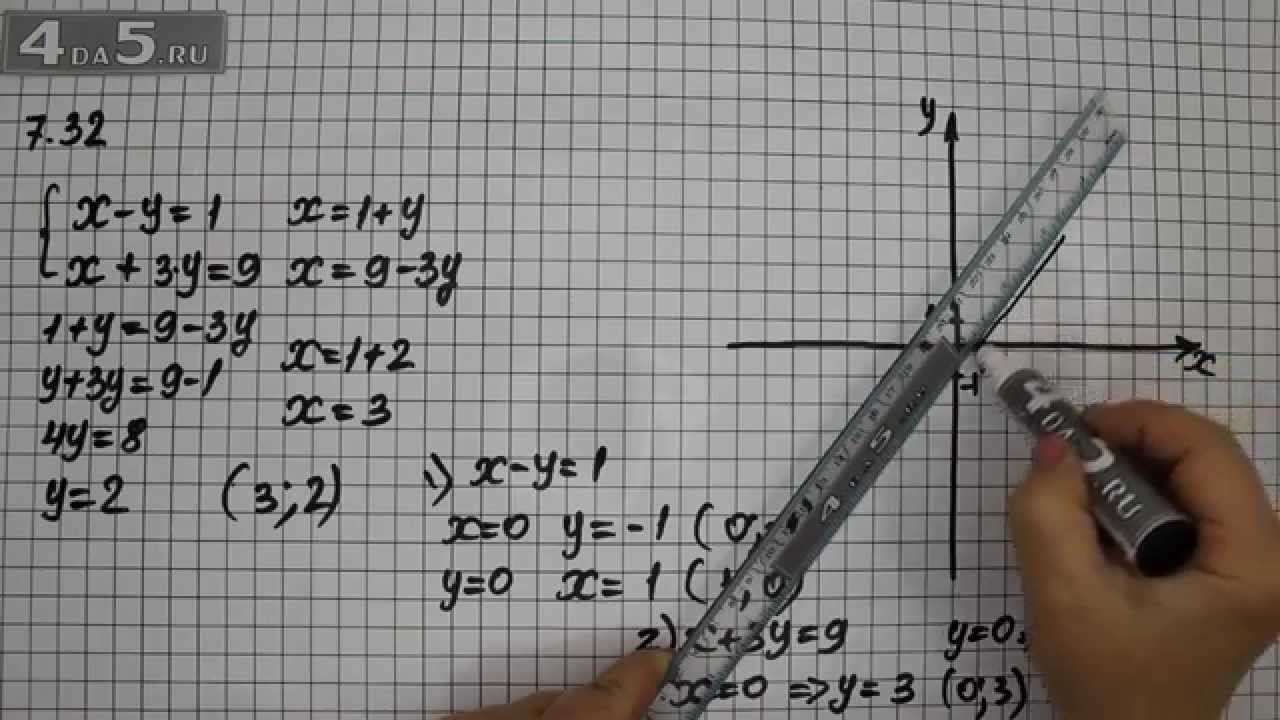 4DA5.RU
7.32
x-y=1 x=1+y
x+3·y=9 x=9-3y
1+y=9-3y
y+3y=9-1
4y=8
y=2 (3;2)
x=1+2
x=3
1) x-y=1
x=0 y=-1 (0;
y=0 x=1 (1; 0)
2) x+3y=9 y=0
x=0 => y=3 (0;3)
y
1
-1
x
4 DA 5 .RU
4DA5.RU